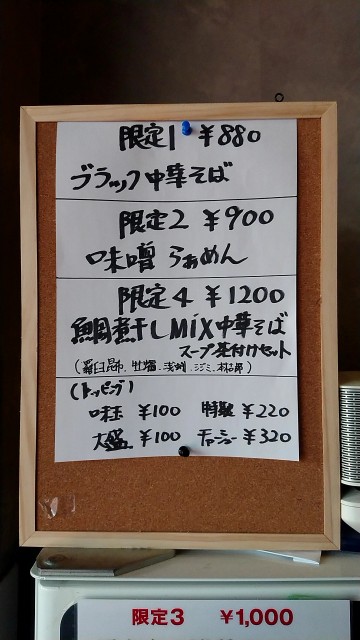 限定1 ¥880
ブラック中華そば
限定2 ¥900
味噌らぁめん
限定4 ¥1200
鯛煮干しMIX中華そば
スープ茶付けセット
(羅臼昆布、牡蠣、浅蜊、シジミ、
(トッピング)
味玉 ¥100 特製 ¥220
大盛 ¥100 チャーシュー ¥320
限定3 ¥1,000